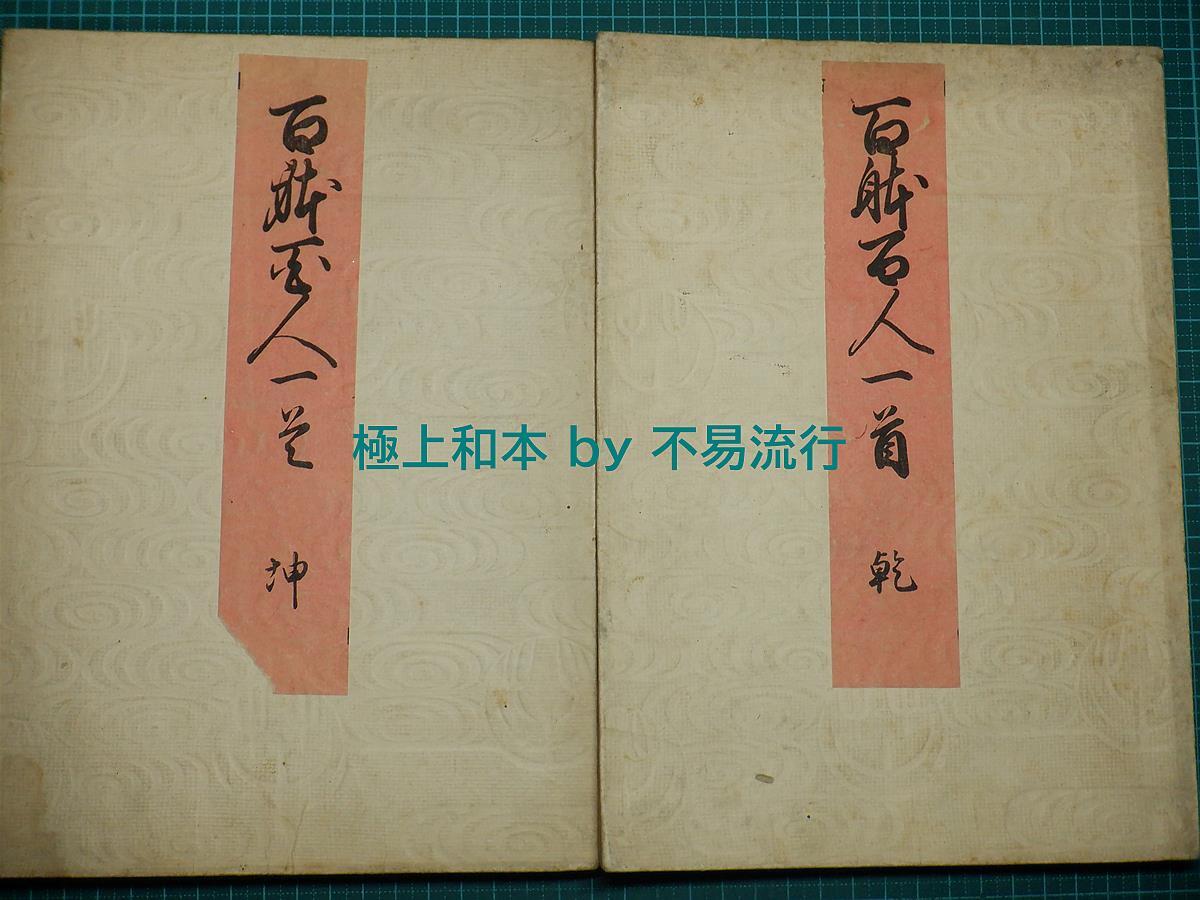 百躰百人一首 乾
百躰百人一首 坤
極上和本 by 不易流行